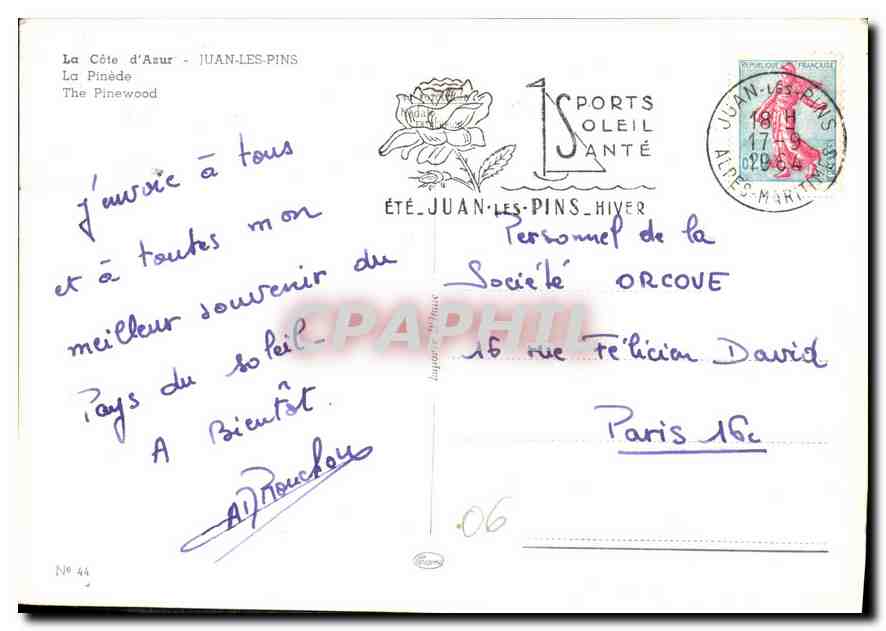 La Côte d'Azur - JUAN-LES-PINS
La Pinède
The Pinewood
SPORTS
SOLEIL
SANTÉ
ÉTÉ_JUAN-LES-PINS_HIVER
RÉPUBLIQUE FRANÇAISE
JUAN-LES-PINS
18 H
17-9
1964
ALPES-MARITIMES
j'envoie à tous
et à toutes mon
meilleur souvenir du
Pays du soleil_
A Bientôt.
Personnel de la
Société ORCOVE
16 rue Félicien David
Paris 16e
CPAPHIL
06
Nº 44